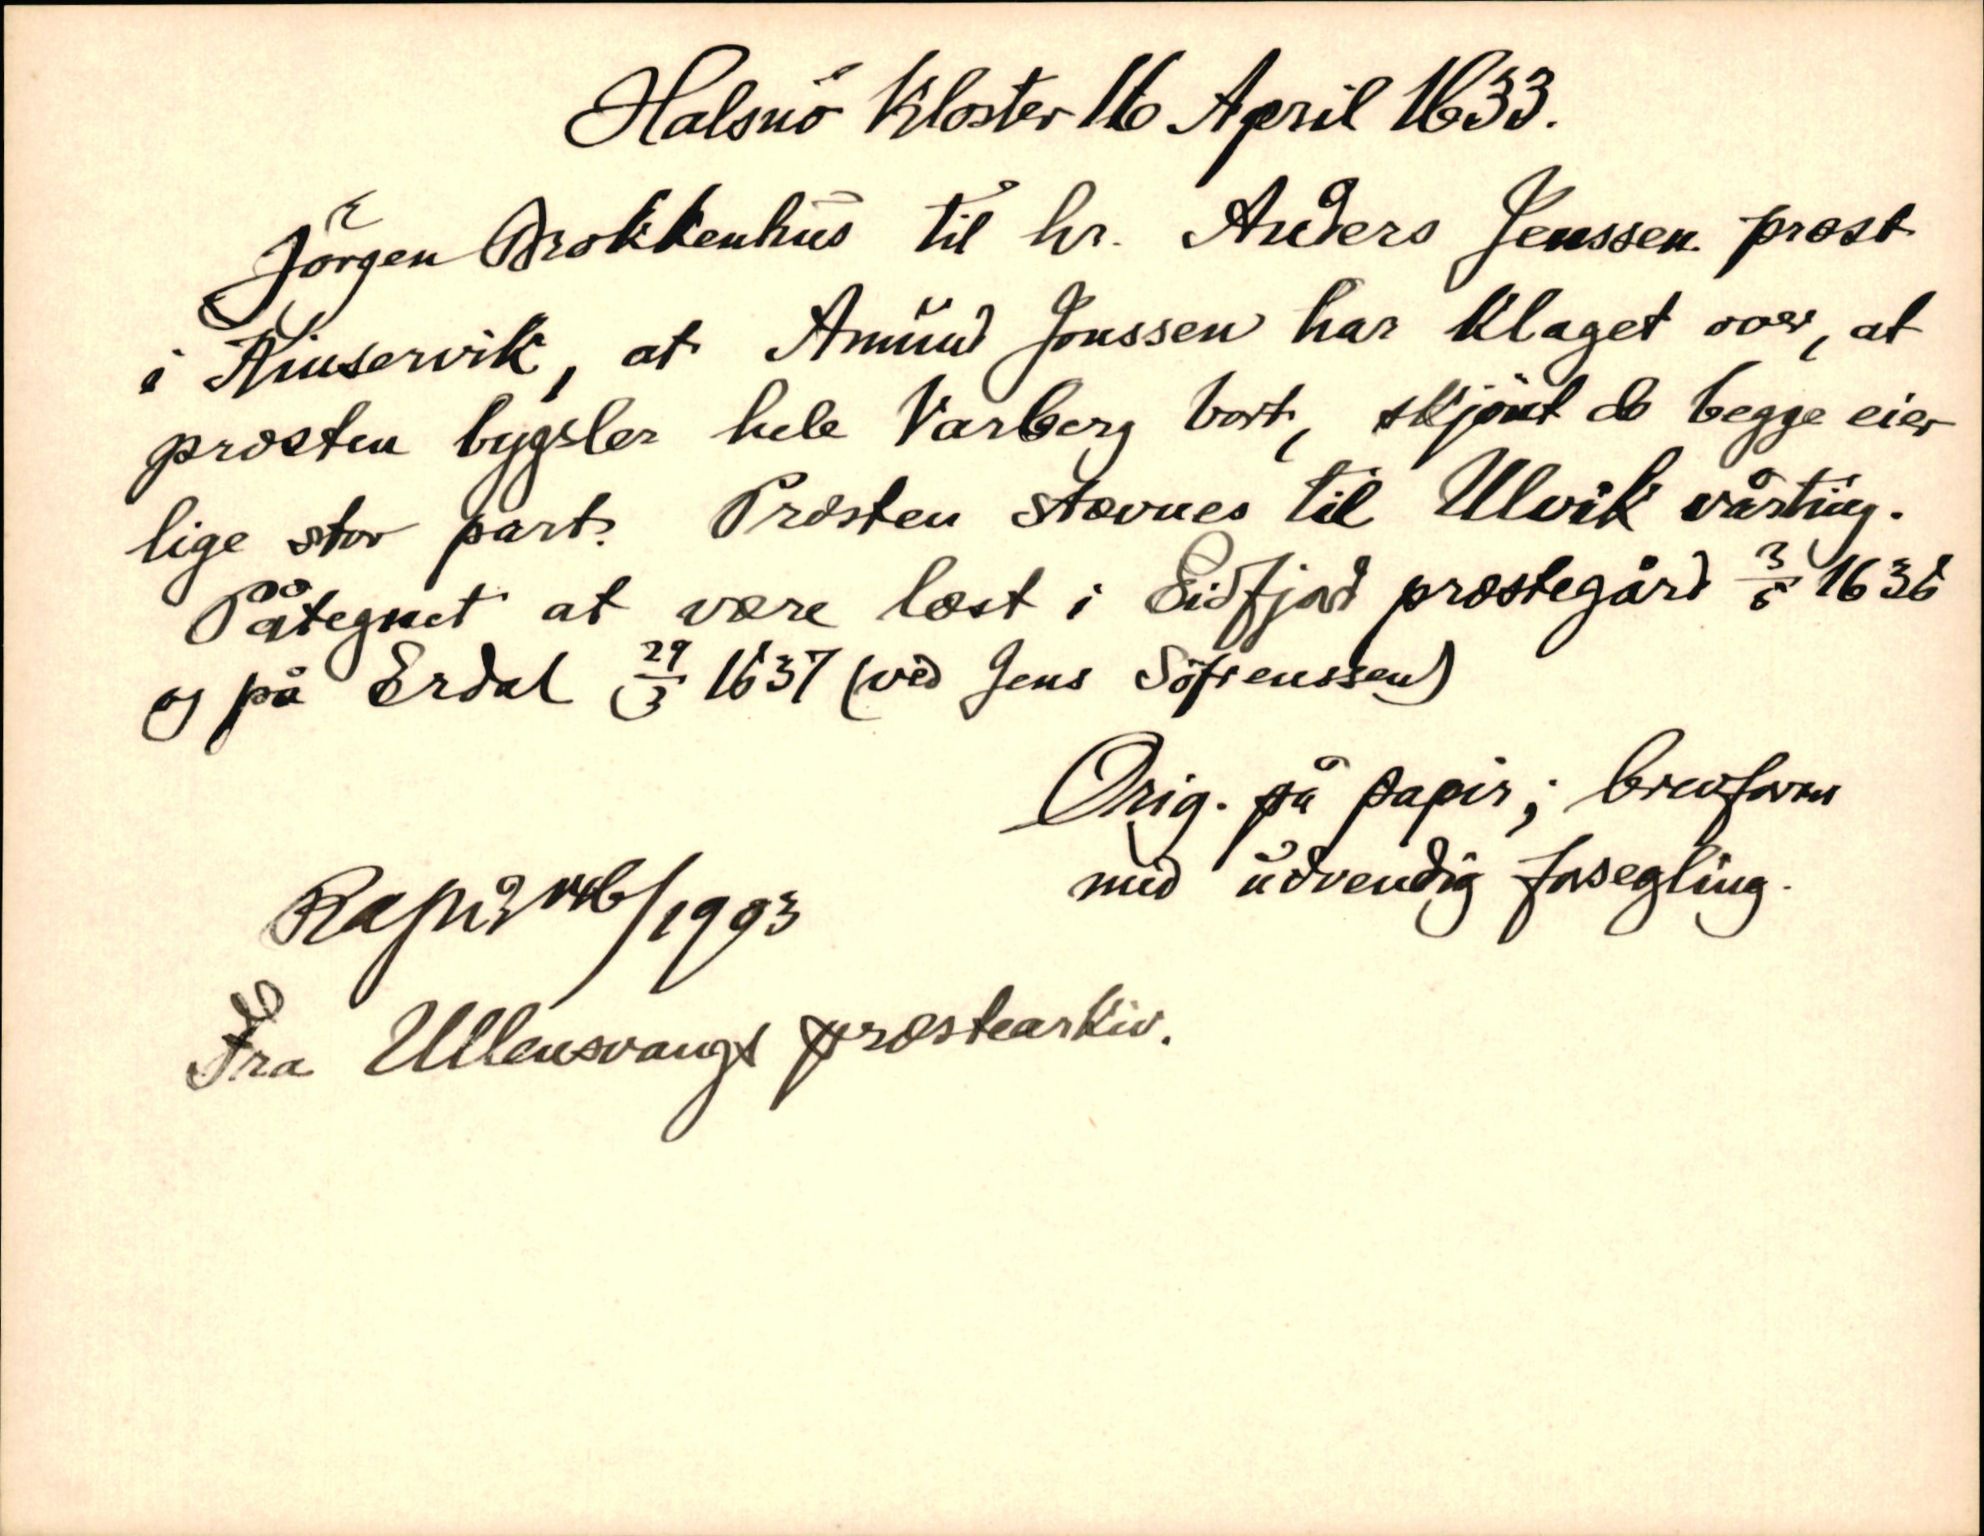 Halsnö Kloster 16 April 1633.
Jörgen Brokkenhus til hr. Anders Jenssen prost
i Kinservik, at Amund Jonssen har klaget over, at
prosten bygsler hele Varberg bort, skjönt de begge eier
lige stor part. Prosten stævnes til Ulvik vårting.
Påtegnet at være læst i Eidfjord prestegård 3/5 1636
og på Erdal 29/3 1637 (ved Jens Söfrenssen)
Orig. på papir; brevform
med udvendig forsegling.
/1903
Fra Ullensvangs præstearkiv.